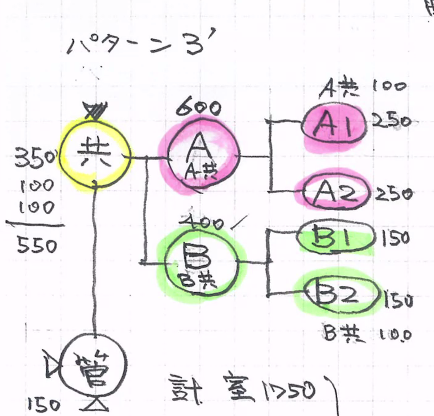 パターン3'
A共 100
600
A1 250
共
A
A共
350
100
100
550
A2 250
400
B1 150
B
B共
B2 150
B共 100
管
150
計 室1750